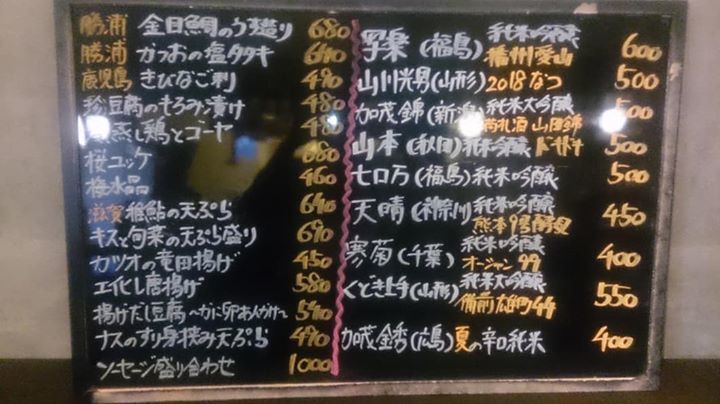 勝浦 金目鯛のうす造り 680
勝浦 かつおの塩タタキ 640
鹿児島 きびなご刺 490
豆腐のもろみ漬け 480
蒸し鶏とゴーヤ 480
桜ユッケ 680
梅水晶 460
滋賀 稚鮎の天ぷら 640
キスと旬菜の天ぷら盛り 690
カツオの竜田揚げ 450
エイヒレ唐揚げ 580
揚げだし豆腐〜かに卵あんかけ〜 590
ナスのすり身挟み天ぷら 490
ソーセージ盛り合わせ 1000
写楽(福島) 純米吟醸 播州愛山 600
山川光男(山形) 2018なつ 500
加茂錦(新潟) 純米大吟醸 荷札酒 山田錦 500
山本(秋田) 純米吟醸 ドキドキ 500
七ロ万(福島) 純米吟醸 500
天晴(神奈川) 純米吟醸 熊本9号酵母 450
寒菊(千葉) 純米吟醸 オーシャン99 400
くどき上手(山形) 純米大吟醸 備前雄町44 550
加茂金秀(広島) 夏の辛口純米 400